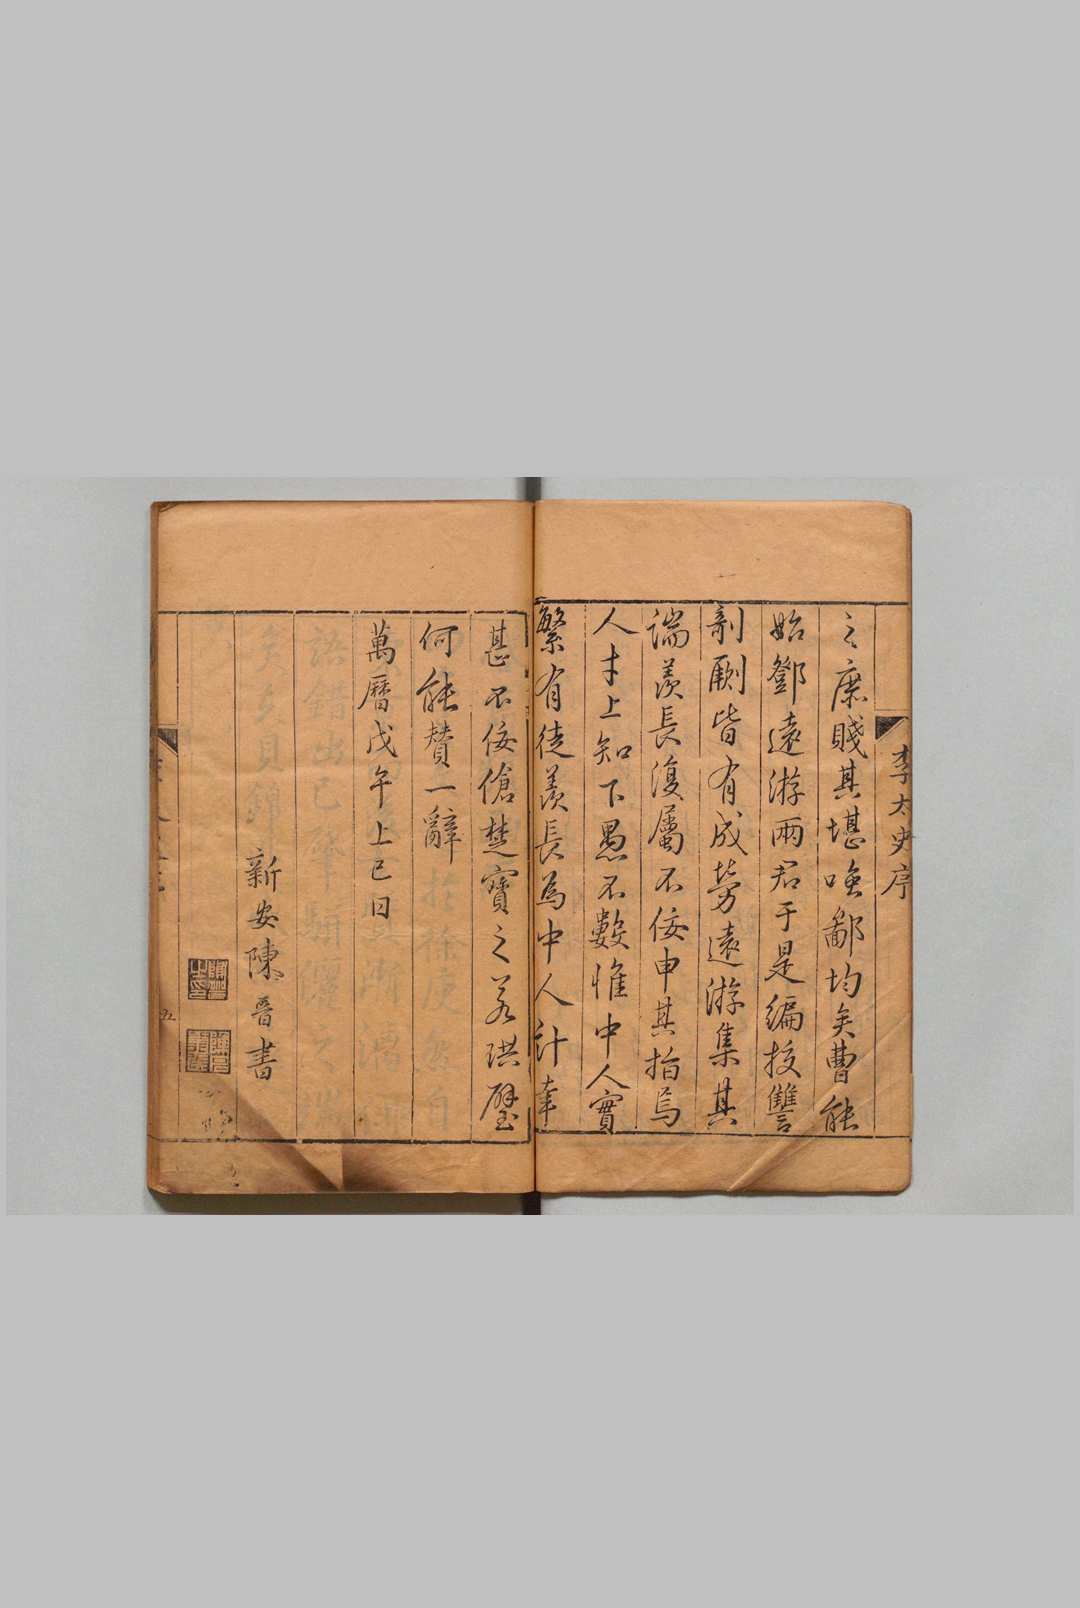 李太史序
之麃賤其堪嗤鄙均矣曹能
始鄧遠游兩君于是編挍讐
剞劂皆有成勞遠游集其
端羨長復屬不佞申其指焉
人才上知下愚不數惟中人實
繁有徒羨長為中人計牽
甚不佞傖楚寶之若珙璧
何能贊一辭
萬曆戊午上巳日
新安陳晉書
五